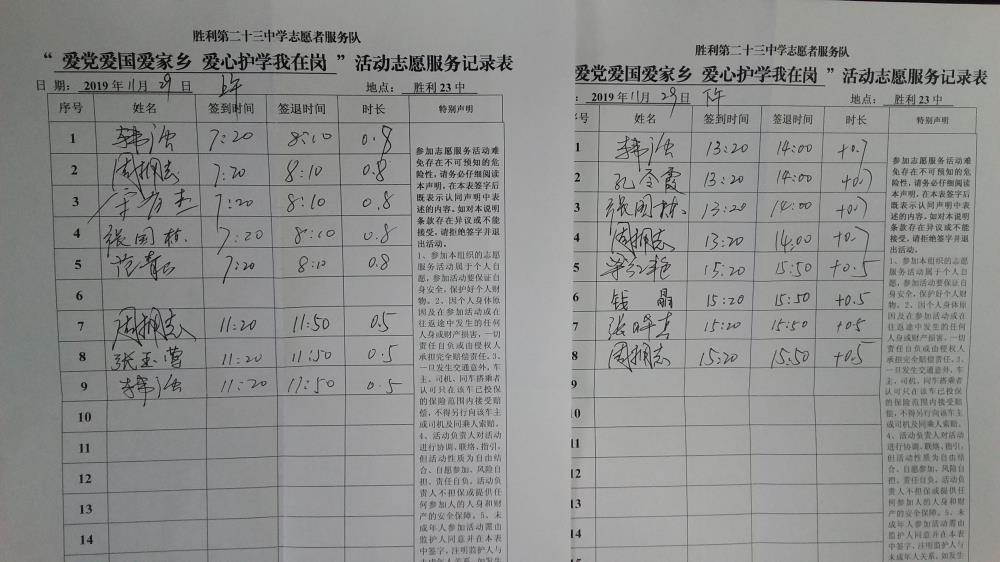 胜利第二十三中学志愿者服务队
“ 爱党爱国爱家乡 爱心护学我在岗 ”活动志愿服务记录表
日 期: 2019 年 11 月 29 日 上午 地点: 胜利 23 中
序号 姓名 签到时间 签退时间 时长 特别声明
1 7:20 8:10 0.8
2 7:20 8:10 0.8
3 7:20 8:10 0.8
4 张国栋 7:20 8:10 0.8
5 7:20 8:10 0.8
6
7 11:20 11:50 0.5
8 张玉莺 11:20 11:50 0.5
9 11:20 11:50 0.5
10
11
12
13
14
参加志愿服务活动难
免存在不可预知的危
险性,请务必仔细阅读
本声明,在本表签字后
既表示认同声明中表
述的内容。如对本说明
条款存在异议或不能
接受,请拒绝签字并退
出活动。
1、参加本组织的志愿
服务活动属于个人自
愿,参加活动要保证自
身安全,保护好个人财
物。2、因个人身体原
因及在参加活动或在
往返途中发生的任何
人身或财产损害,一切
责任自负或由侵权人
承担完全赔偿责任。3、
一旦发生交通意外,车
主、司机、同车搭乘者
认可只在该车已投保
的保险范围内接受赔
偿,不得另行向该车主
或司机及同乘人索赔。
4、活动负责人对活动
进行协调、联络、指引,
但活动性质为自由结
合、自愿参加、风险自
担、责任自负。活动负
责人不担保或提供任
何参加人的人身和财
产的安全保障。5、未
成年人参加活动需由
监护人同意并在本表
中签字,注明监护人与
未成年人关系。如发生
胜利第二十三中学志愿者服务队
爱党爱国爱家乡 爱心护学我在岗 ”活动志愿服务记录表
: 2019 年 11 月 29 日 下午 地点: 胜利 23 中
号 姓名 签到时间 签退时间 时长 特别声明
1 13:20 14:00 +0.7
2 孔令霞 13:20 14:00 +0.7
3 张国栋 13:20 14:00 +0.7
4 13:20 14:00 +0.7
5 15:20 15:50 +0.5
6 钱晶 15:20 15:50 +0.5
7 15:20 15:50 +0.5
8 15:20 15:50 +0.5
9
10
11
12
13
14
15
参加志愿服务活动难
免存在不可预知的危
险性,请务必仔细阅读
本声明,在本表签字后
既表示认同声明中表
述的内容。如对本说明
条款存在异议或不能
接受,请拒绝签字并退
出活动。
1、参加本组织的志愿
服务活动属于个人自
愿,参加活动要保证自
身安全,保护好个人财
物。2、因个人身体原
因及在参加活动或在
往返途中发生的任何
人身或财产损害,一切
责任自负或由侵权人
承担完全赔偿责任。3、
一旦发生交通意外,车
主、司机、同车搭乘者
认可只在该车已投保
的保险范围内接受赔
偿,不得另行向该车主
或司机及同乘人索赔。
4、活动负责人对活动
进行协调、联络、指引,
但活动性质为自由结
合、自愿参加、风险自
担、责任自负。活动负
责人不担保或提供任
何参加人的人身和财
产的安全保障。5、未
成年人参加活动需由
监护人同意并在本表
中签字,注明监护人与
未成年人关系。如发生